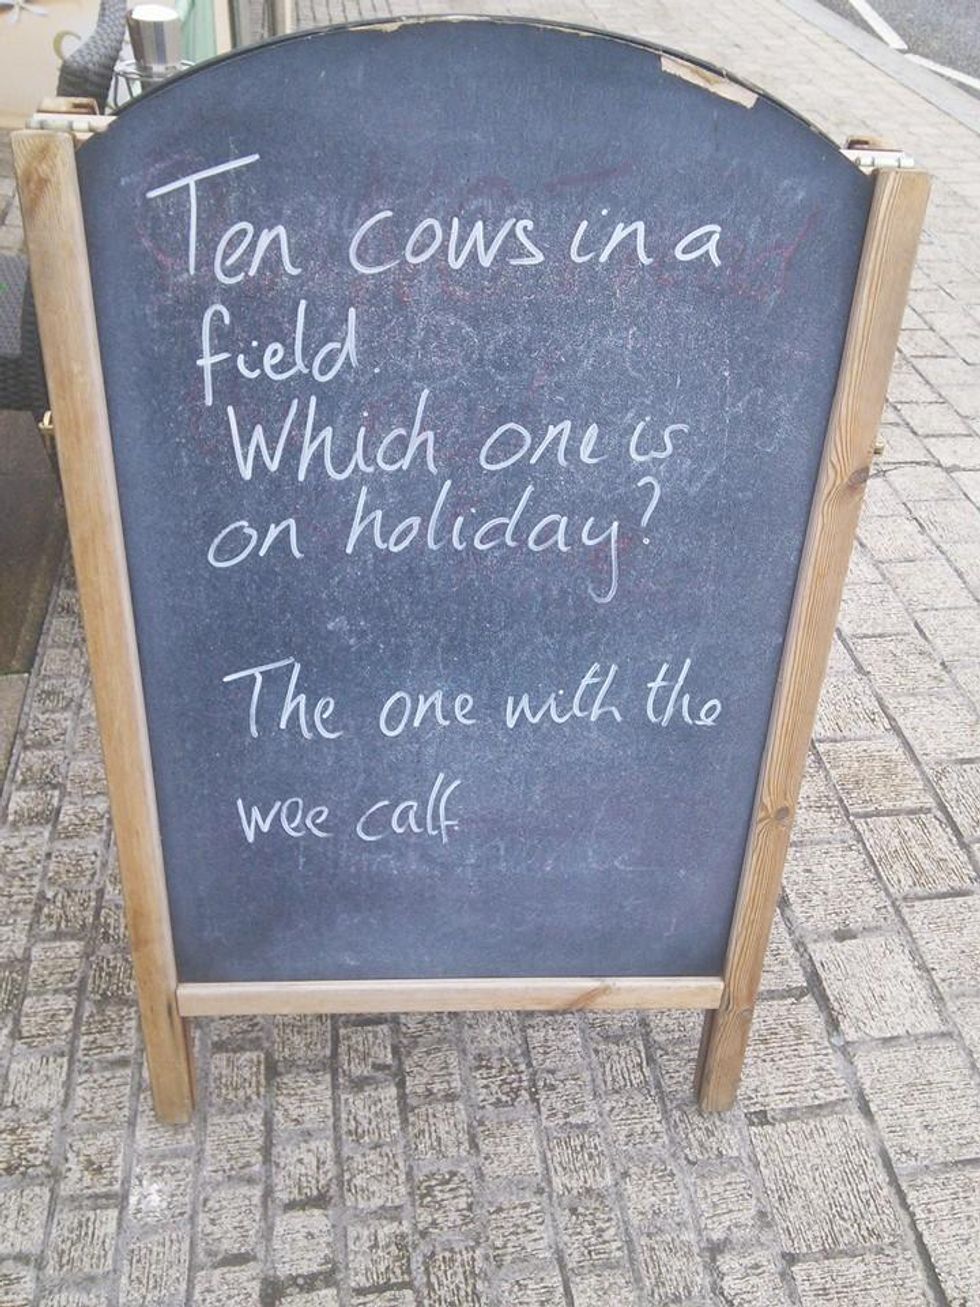 Ten cows in a
field.
Which one is
on holiday?
The one with the
wee calf